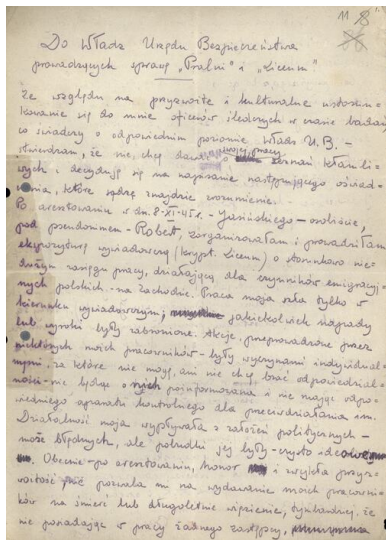 11 8
Do Władz Urzędu Bezpieczeństwa
prowadzących sprawę „Pralni" i „Liceum"
Ze względu na przyzwoite i kulturalne ustosun-
kowanie się do mnie oficerów śledczych w czasie badań
co świadczy o odpowiednim poziomie władz U.B. –
stwierdzam, że nie chcę dawać swojej pracy zeznań kłamli-
wych i decyduję się na napisanie następującego oświad-
czenia, które sądzę znajdzie zrozumienie.
Po aresztowaniu w dn. 8-XI-45 r. – Jasińskiego – osobiście,
pod pseudonimem – Robert, zorganizowałam i prowadziłam
ekspozyturę wywiadowczą (krypt. Liceum) o stosunkowo nie-
dużym zasięgu pracy, działającą dla czynników emigracyj-
nych polskich – na zachodzie. Praca moja szła tylko w
kierunku wywiadowczym; jakiekolwiek nagrody
lub wyroki były zabronione. Akcje przeprowadzone przez
niektórych moich pracowników – były wyczynami indywidual-
nymi – za które nie mogę, ani nie chcę brać odpowiedzial-
ności – nie będąc o nich poinformowana i nie mając odpo-
wiedniego aparatu kontrolnego dla przeciwdziałania im.
Działalność moja wypływała z założeń politycznych –
może błędnych, ale pobudki jej były – czysto ideowe
Obecnie – po aresztowaniu, honor i zwykła przyz-
woitość, nie pozwala mi na wydawanie moich pracowni-
ków na śmierć lub długoletnie więzienie, tymbardziej, że
nie posiadając w pracy żadnego zastępcy,